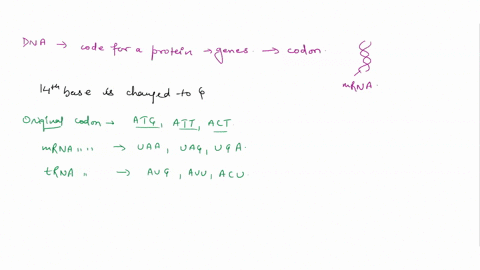 DNA → code for a protein → genes → codon.
mRNA.
14th base is changed to G
Original codon → ATG, ATT, ACT.
mRNA " " → UAA, UAG, UGA.
tRNA " → AUG, AUU, ACU.